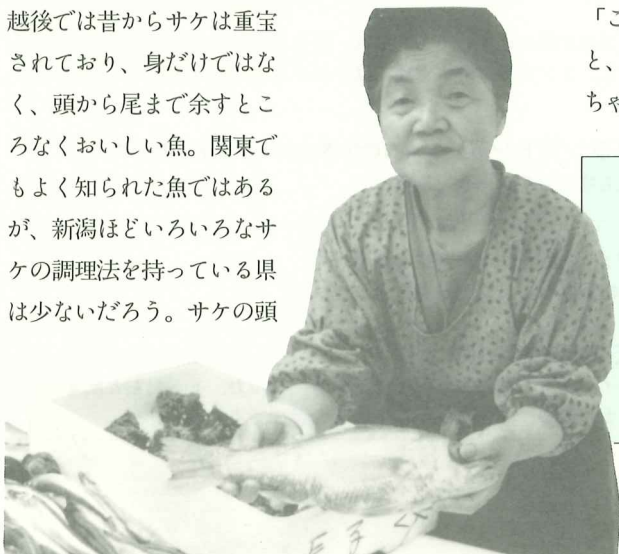 越後では昔からサケは重宝
されており、身だけではな
く、頭から尾まで余すとこ
ろなくおいしい魚。関東で
もよく知られた魚ではある
が、新潟ほどいろいろなサ
ケの調理法を持っている県
は少ないだろう。サケの頭
「こ
と、
ちゃ